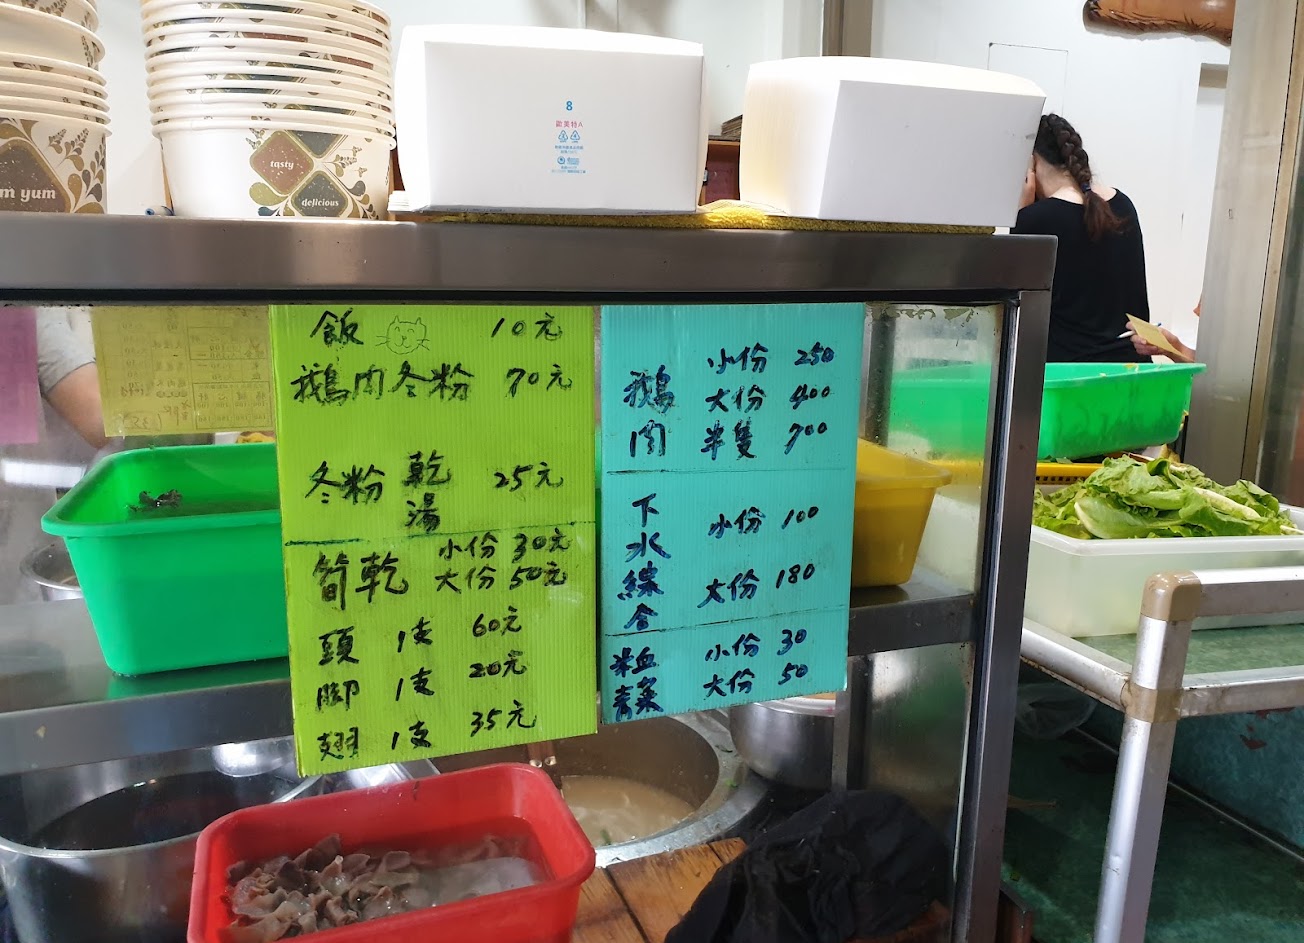 tasty
delicious
m yum
8
飯 10元
鵝肉冬粉 70元
冬粉 乾 湯 25元
筍乾 小份 30元
大份 50元
頭 1支 60元
脚 1支 20元
翅 1支 35元
鵝肉 小份 250
大份 400
半隻 700
下水綜合 小份 100
大份 180
粒血 小份 30
青菜 大份 50